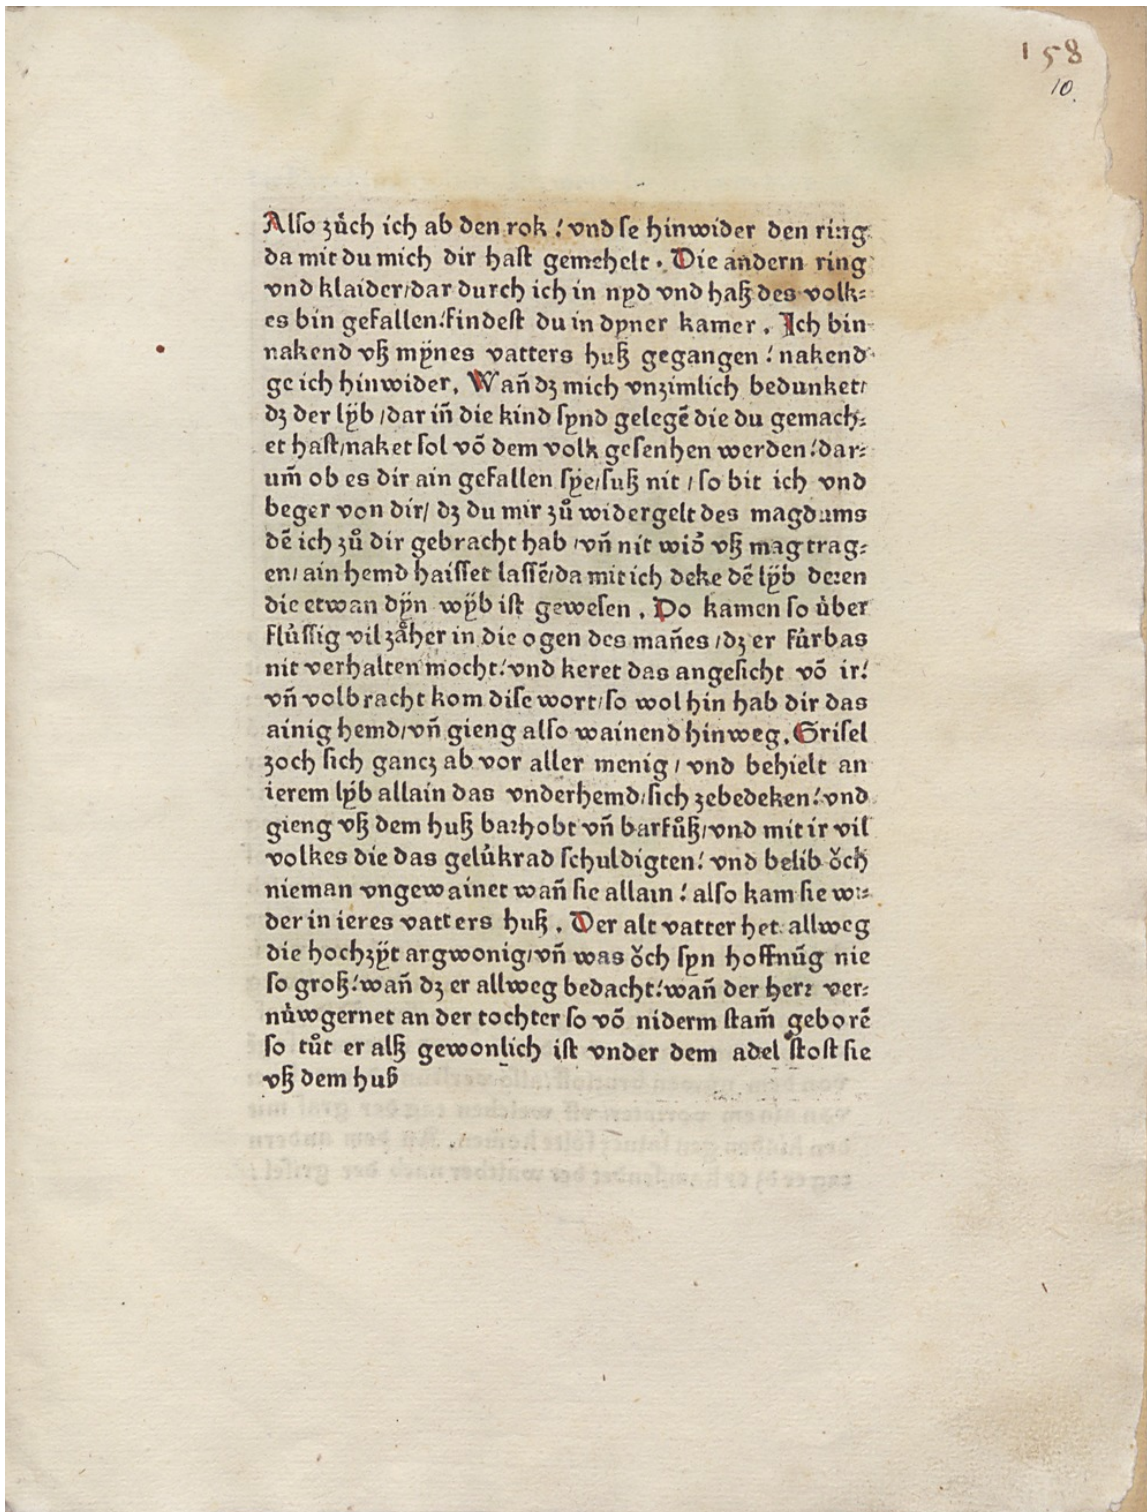 158
10.
Also zůch ich ab den rok / vnd se hinwider den ring
da mit du mich dir hast gemehelt . Die andern ring
vnd klaider/dar durch ich in nyd vnd haß des volk⸗
es bin gefallen/findest du in dyner kamer . Ich bin
nakend vß mÿnes vatters huß gegangen / nakend
ge ich hinwider . Wañ dz mich vnzimlich bedunket/
dz der lÿb /dar iñ die kind synd gelegē die du gemach⸗
et hast/naket sol vō dem volk gesenhen werden/dar⸗
um̃ ob es dir ain gefallen sye/suß nit / so bit ich vnd
beger von dir/ dz du mir zů widergelt des magdums
dē ich zů dir gebracht hab /vñ nit wid̕ vß mag trag⸗
en/ ain hemd haisset lassē/da mit ich deke dē lÿb deren
die etwan dÿn wÿb ist gewesen . Do kamen so ůber
flůssig vil zåher in die ogen des mañes /dz er fůrbas
nit verhalten mocht/vnd keret das angesicht vō ir/
vñ volbracht kom dise wort/so wol hin hab dir das
ainig hemd/vñ gieng also wainend hinweg . Grisel
zoch sich gancz ab vor aller menig / vnd behielt an
ierem lÿb allain das vnderhemd/sich zebedeken/vnd
gieng vß dem huß barhobt vñ barfůß/vnd mit ir vil
volkes die das gelůkrad schuldigten/ vnd belib ǒch
nieman vngewainet wañ sie allain / also kam sie wi⸗
der in ieres vatters huß . Der alt vatter het allweg
die hochzÿt argwonig/vñ was ǒch syn hoffnūg nie
so groß/wañ dz er allweg bedacht/wañ der herr ver⸗
nůwgernet an der tochter so vō niderm stam̃ geborē
so tůt er alß gewonlich ist vnder dem adel stost sie
vß dem huß